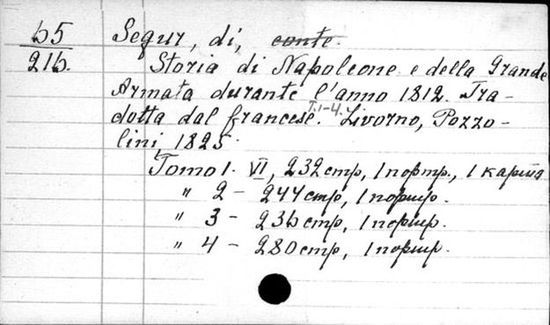 65 Segur, di, conte.
216. Storia di Napoleone e della Grande
Armata durante l'anno 1812. Tra-
dotta dal francese. T.1-4. Livorno, Pozzo-
lini, 1825.
Tomo 1. VI, 232 стр., 1 портр., 1 карта
" 2 - 244 стр., 1 портр.
" 3 - 236 стр., 1 портр.
" 4 - 280 стр., 1 портр.